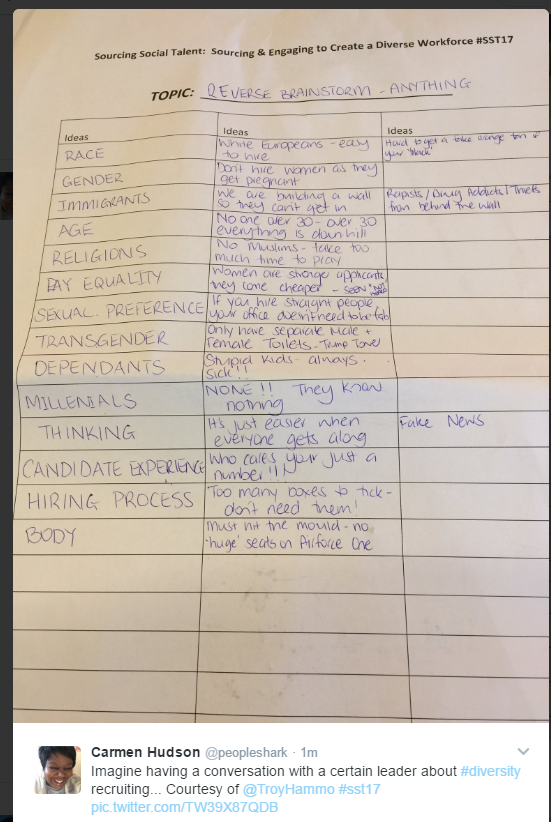 Sourcing Social Talent: Sourcing & Engaging to Create a Diverse Workforce #SST17
TOPIC: REVERSE BRAINSTORM - ANYTHING
Ideas Ideas Ideas
RACE
White Europeans - easy
to hire
Hard to get a fake orange tan if
your 'black'
GENDER
Don't hire women as they
get pregnant
IMMIGRANTS
We are building a wall
so they can't get in
Rapists / Drug Addicts / Thiefs
from behind the wall
AGE
No one over 30 - over 30
everything is downhill
RELIGIONS
No Muslims - take too
much time to pray
PAY EQUALITY
Women are strange applicants
they come cheaper -
SEXUAL PREFERENCE
If you hire straight people
your office doesn't need to be fab
TRANSGENDER
Only have separate Male +
Female Toilets - Trump Tower
DEPENDANTS
Stupid Kids - always
sick!!
MILLENIALS
NONE!! They know
nothing
THINKING
It's just easier when
everyone gets along
Fake News
CANDIDATE EXPERIENCE
Who cares your just a
number!!!
HIRING PROCESS
Too many boxes to tick -
don't need them!
BODY
Must hit the mould - no
'huge' seats on Airforce One
Carmen Hudson @peopleshark · 1m
Imagine having a conversation with a certain leader about #diversity
recruiting... Courtesy of @TroyHammo #sst17
pic.twitter.com/TW39X87QDB